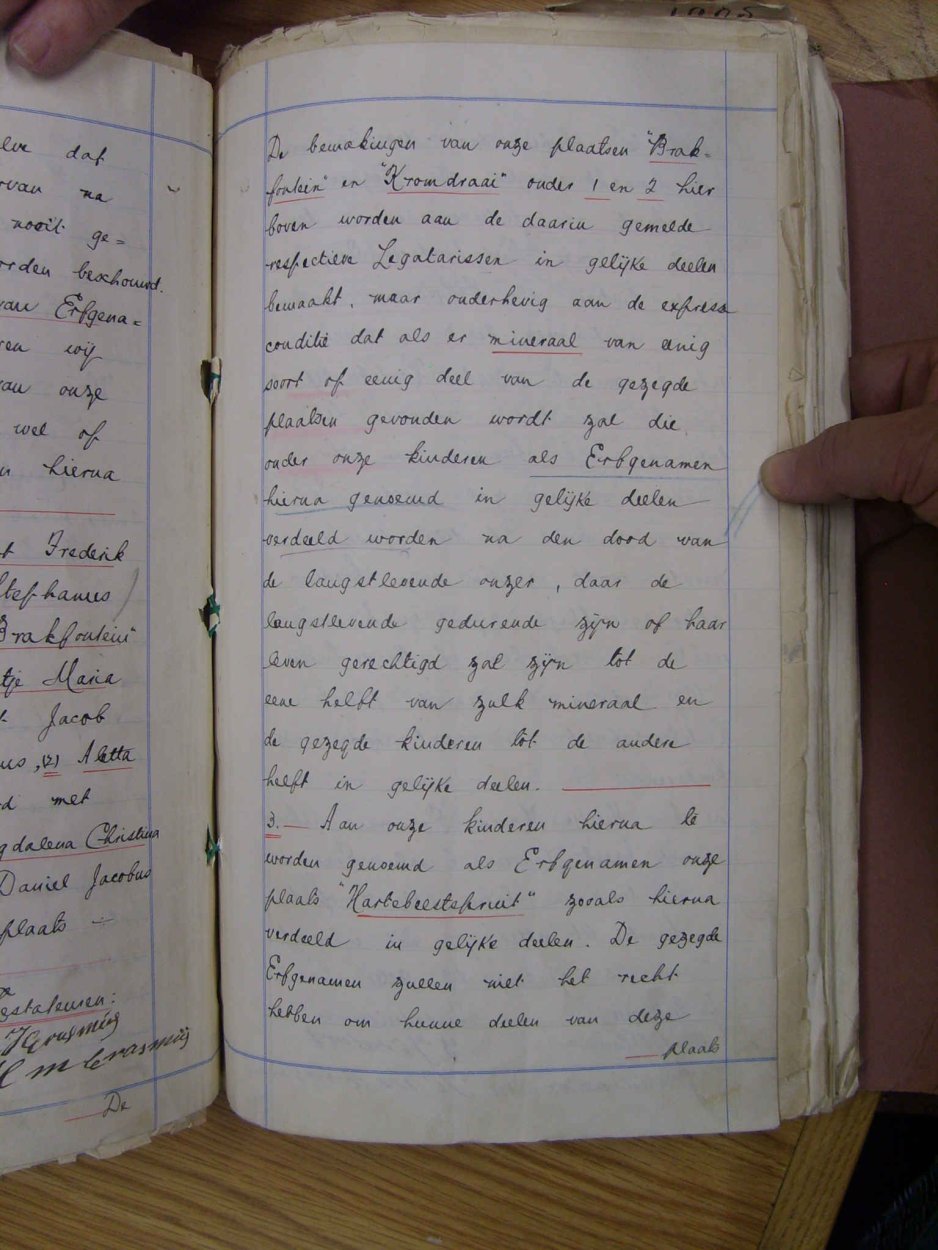 dat
na
nooit ge=
beschouwd.
van Erfgena=
wij
van onze
wel of
hierna
Frederik
Stephanus
Brakfontein"
Maria
Jacob
(2) Aletta
met
Magdalena Christina
Daniel Jacobus
plaats
Testateuren:
J Erasmus
H M Erasmus
De
De bemakingen van onze plaatsen "Brak=
fontein" en "Kromdraai" onder 1 en 2 hier
boven worden aan de daarin gemelde
respectieve Legatarissen in gelijke deelen
bemaakt, maar onderhevig aan de expresse
conditie dat als er mineraal van eenig
soort of eenig deel van de gezegde
plaatsen gevonden wordt zal die
onder onze kinderen als Erfgenamen
hierna genoemd in gelijke deelen
verdeeld worden na den dood van
de langstlevende onzer, daar de
langstlevende gedurende zijn of haar
leven gerechtigd zal zijn tot de
eene helft van zulk mineraal en
de gezegde kinderen tot de andere
helft in gelijke deelen.
3. — Aan onze kinderen hierna te
worden genoemd als Erfgenamen onze
plaats "Hartebeestspruit" zooals hierna
verdeeld in gelijke deelen. De gezegde
Erfgenamen zullen niet het recht
hebben om hunne deelen van deze
plaats